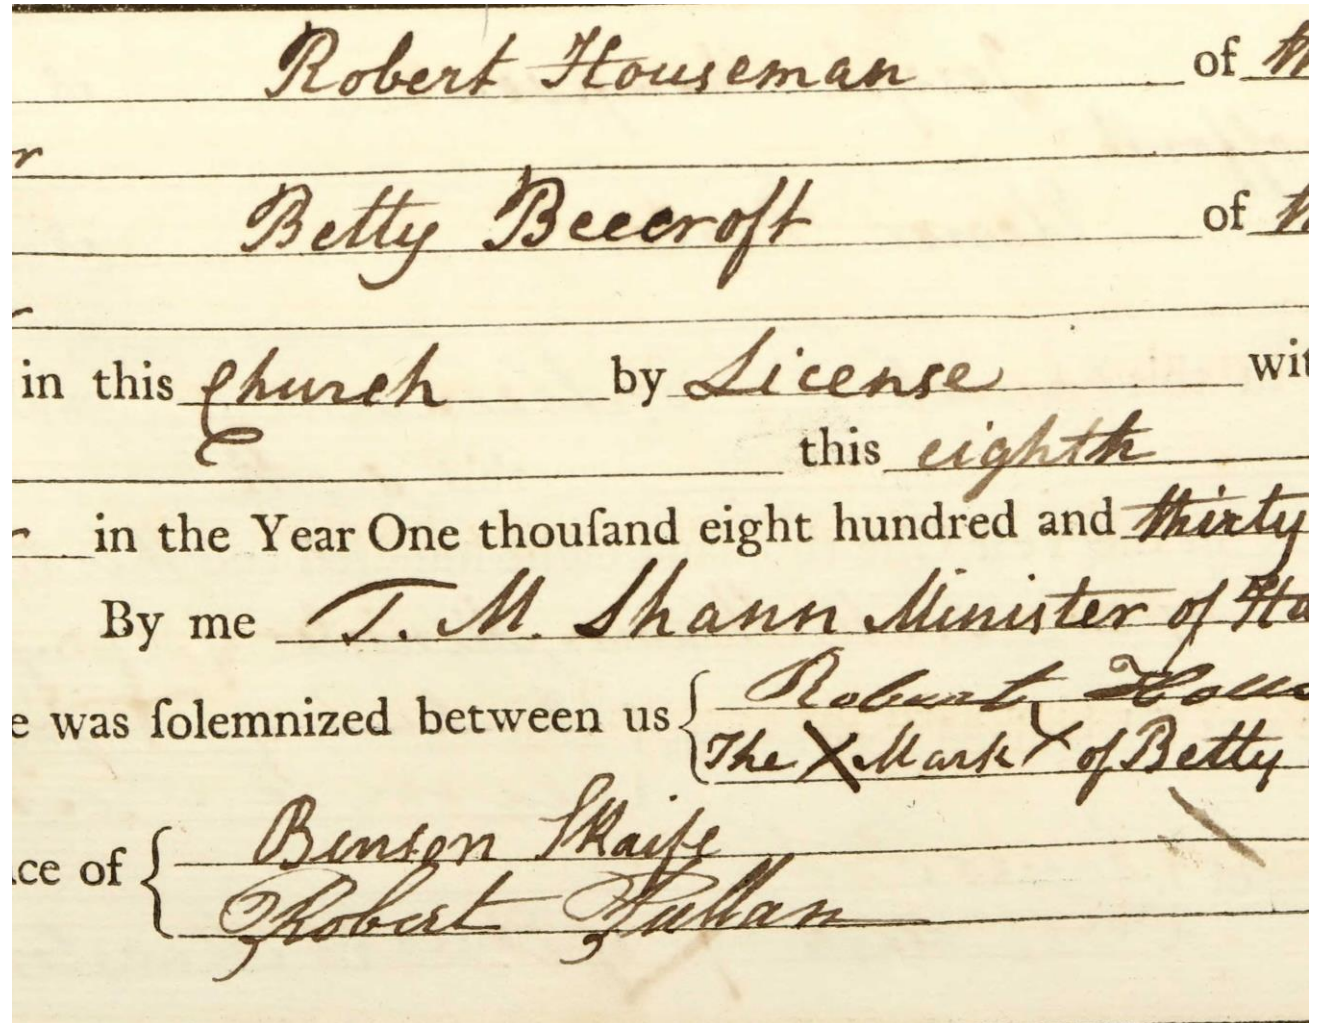 Robert Houseman of
Betty Beecroft of
in this Church by License
this eighth
in the Year One thouſand eight hundred and thirty
By me T. M. Shann Minister of Ha
e was ſolemnized between us { Robert Hous
The X Mark X of Betty
ce of { Benson Skaife
Robert Pullan